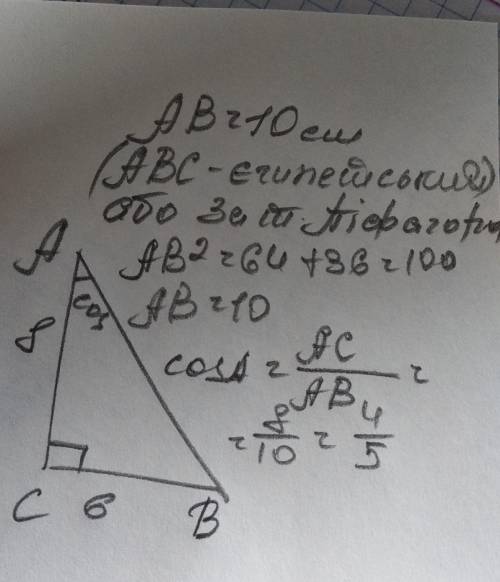 AB = 10 см
(ABC - єгипетський)
або за т. Піфагора
AB² = 64 + 36 = 100
AB = 10
cosA = AC/AB =
= 8/10 = 4/5
A
cos
8
C 6 B